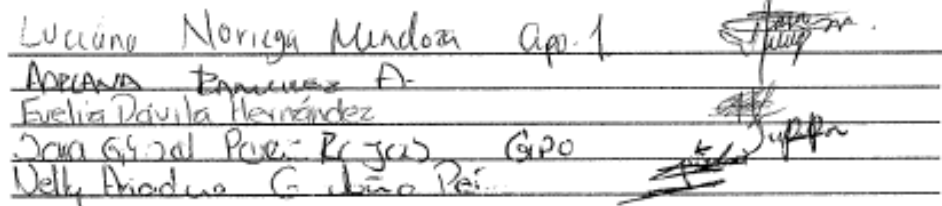 Luciano Noriega Mendoza Gpo. 1
Adriana Ramirez A.
Evelia Dávila Hernández
Sara Perez Rojas Gpo
Nelly Ariadna